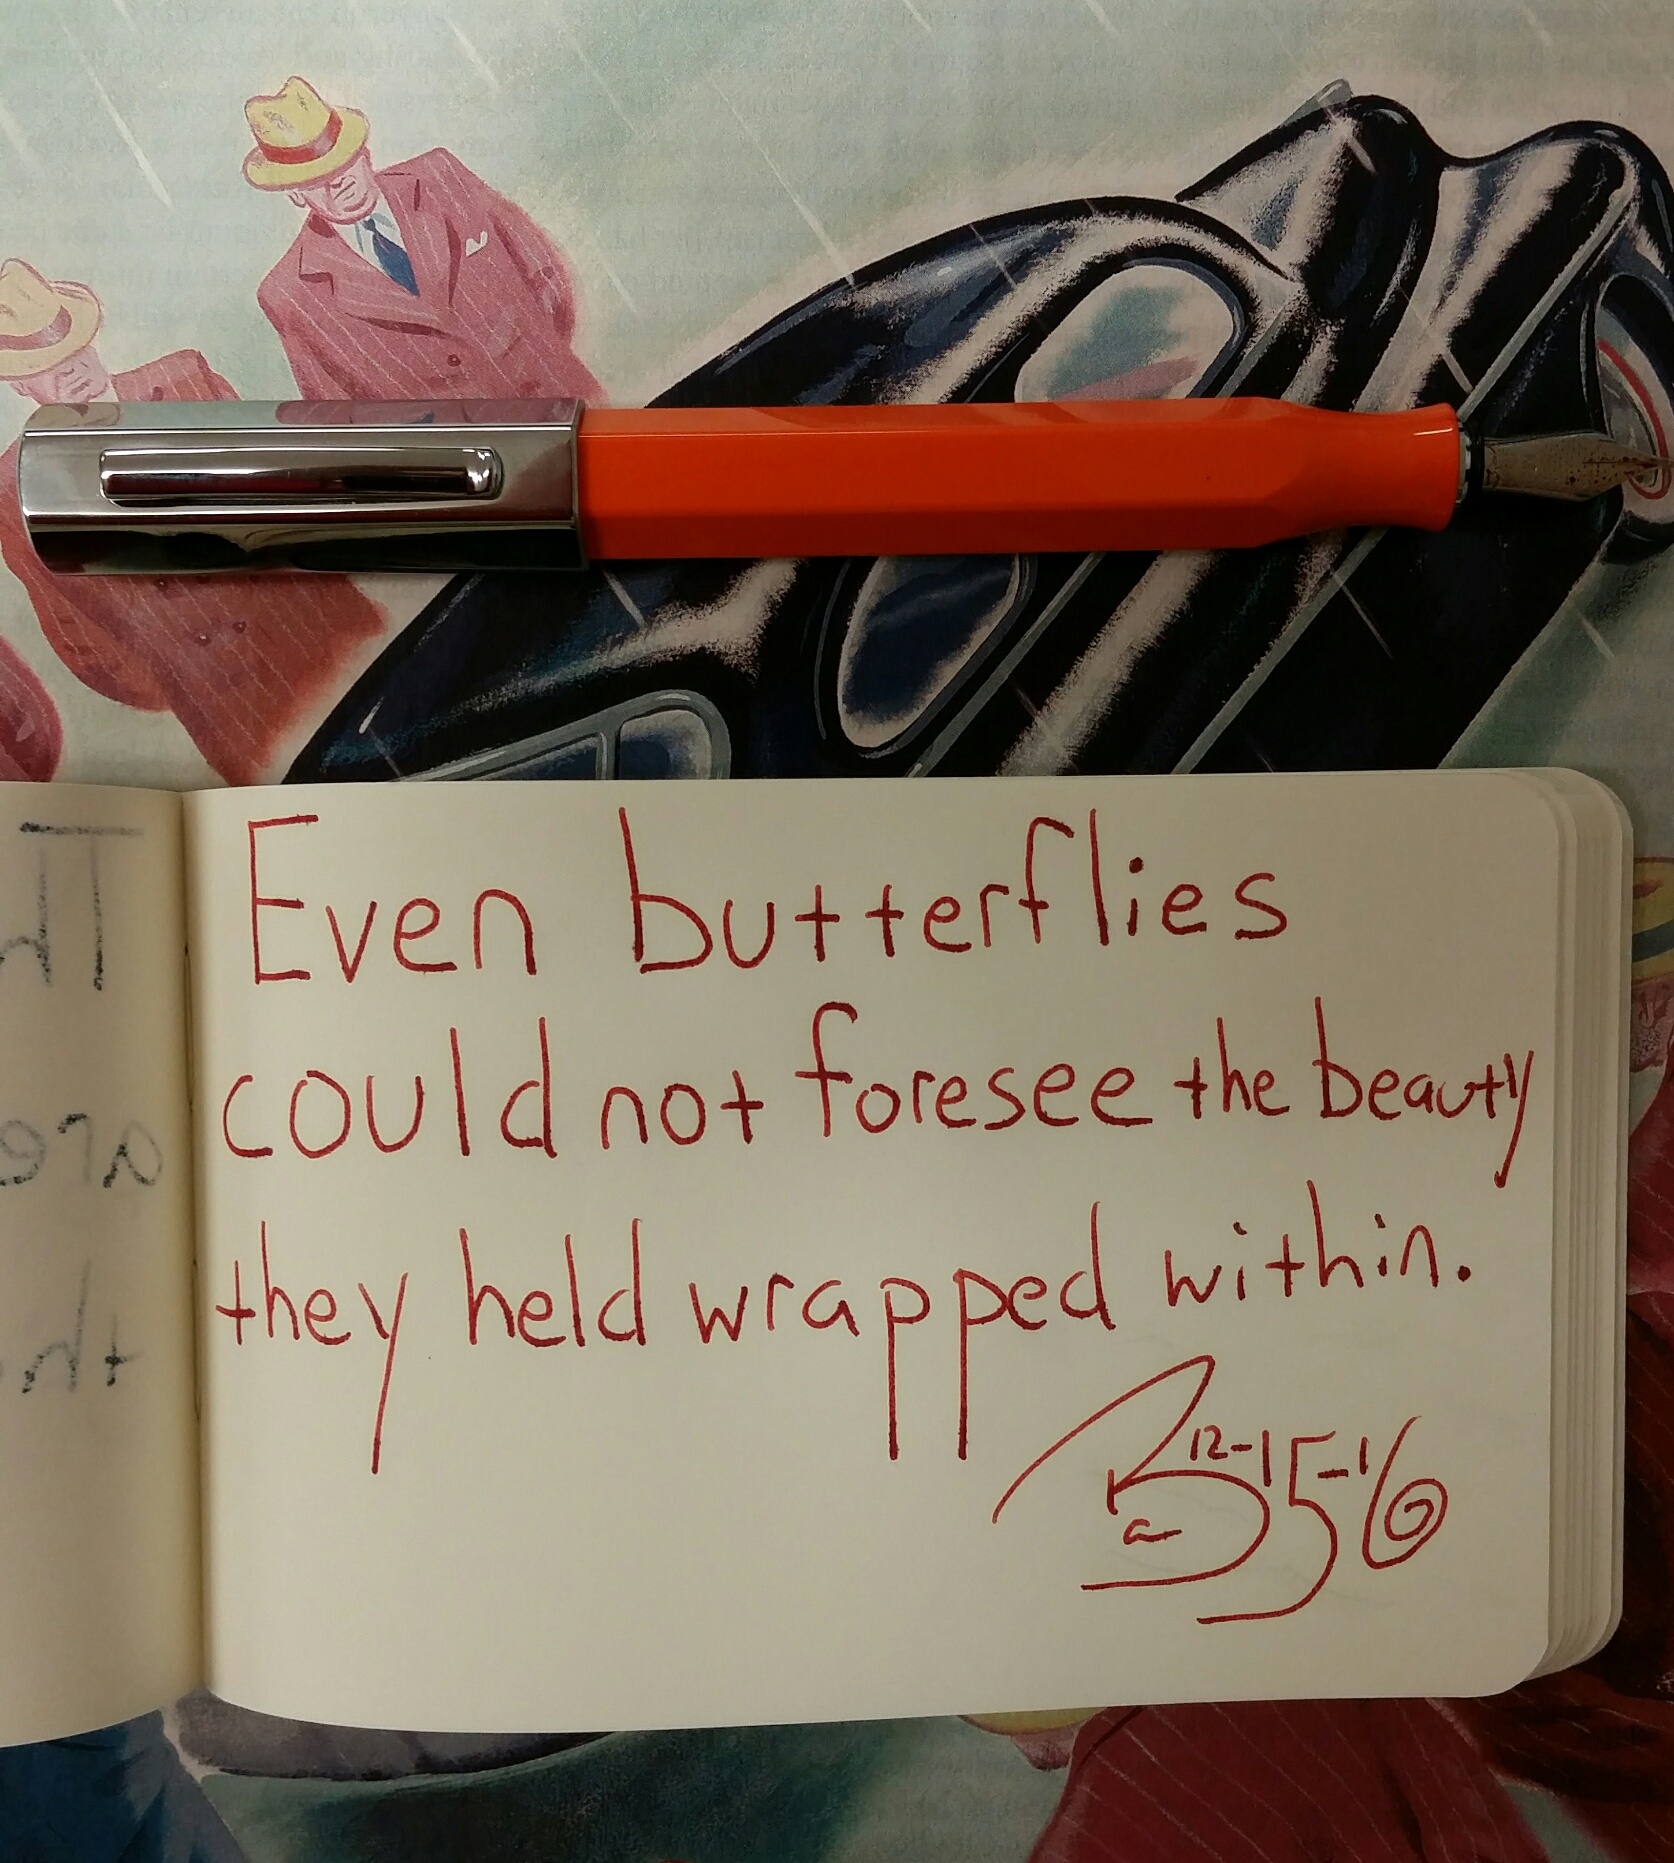 Even butterflies
could not foresee the beauty
they held wrapped within.
12-15-16